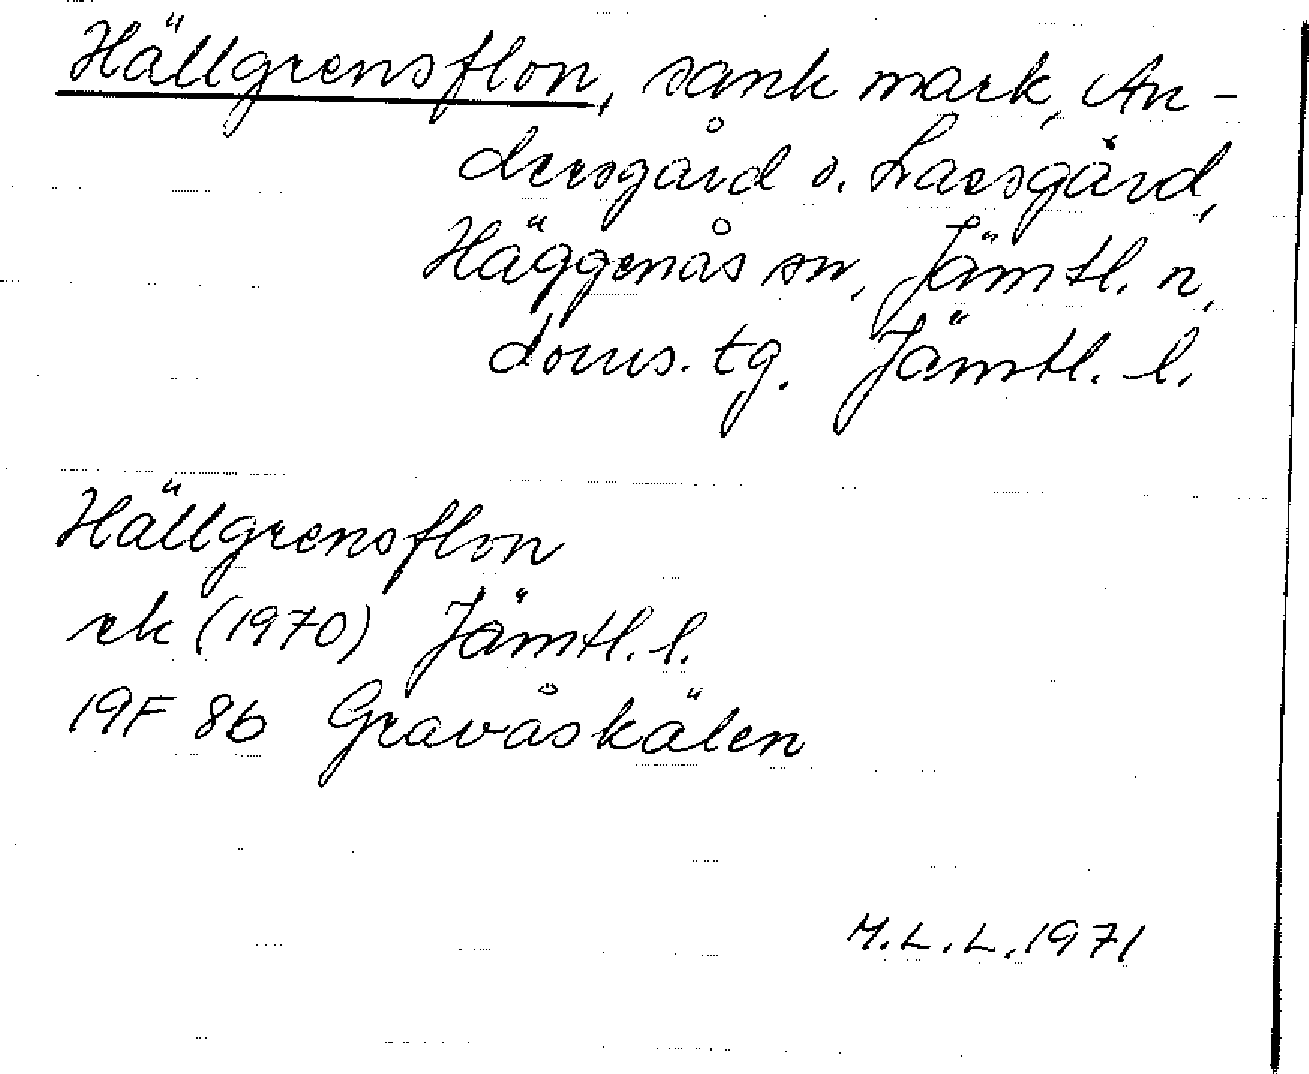 Hällgrensflon, sank mark, An-
dersgård o. Larsgård,
Häggenås sn, Jämtl. n,
doms. tg. Jämtl. l.
Hällgrensflon
ek (1970) Jämtl. l.
19F 8b Gravåskälen
M.L.L. 1971